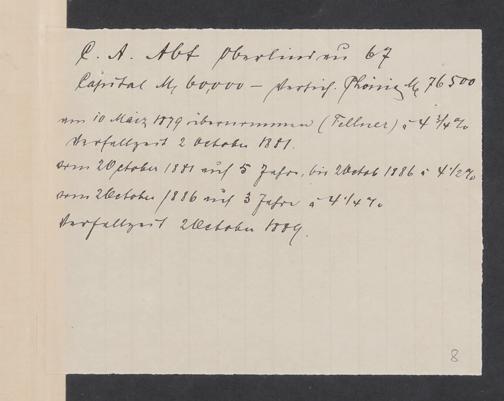 C. A. Abt Oberlindau 67
Capital M 60000 – Versich. Phönix M 76500
am 10 März 1879 übernommen (Fellner) à 4 3/4 %
Verfallzeit 2 October 1881.
vom 2 October 1881 auf 5 Jahre, bis 2 Octob 1886 à 4 1/2 %
vom 2 October 1886 auf 3 Jahre à 4 1/4 %
Verfallzeit 2 October 1889.
8